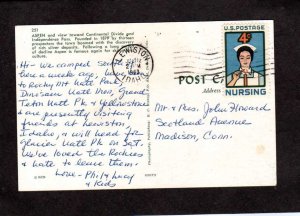 251
ASPEN and view toward Continental Divide and
Independence Pass. Founded in 1879 by thirteen
prospectors the town boomed with the discovery
of rich silver deposits. Following a long period
of decline Aspen is famous again for
U.S. POSTAGE
4¢
NURSING
LEWISTON
1962
IDAHO
POST C
Address
Hi- We camped
here a week ago, been
to Rocky Mt Natl Park
Dinosaur Natl Mon, Grand
Teton Natl Pk & Yellowstone
and are presently visiting
friends at Lewiston
Idaho, & will head for
Glacier Natl Pk on Sat.
We've loved the Rockies
& hate to leave them.
Love - Phil, Lucy
& Kids
Mr & Mrs. John Howard
Scotland Avenue
Madison, Conn.